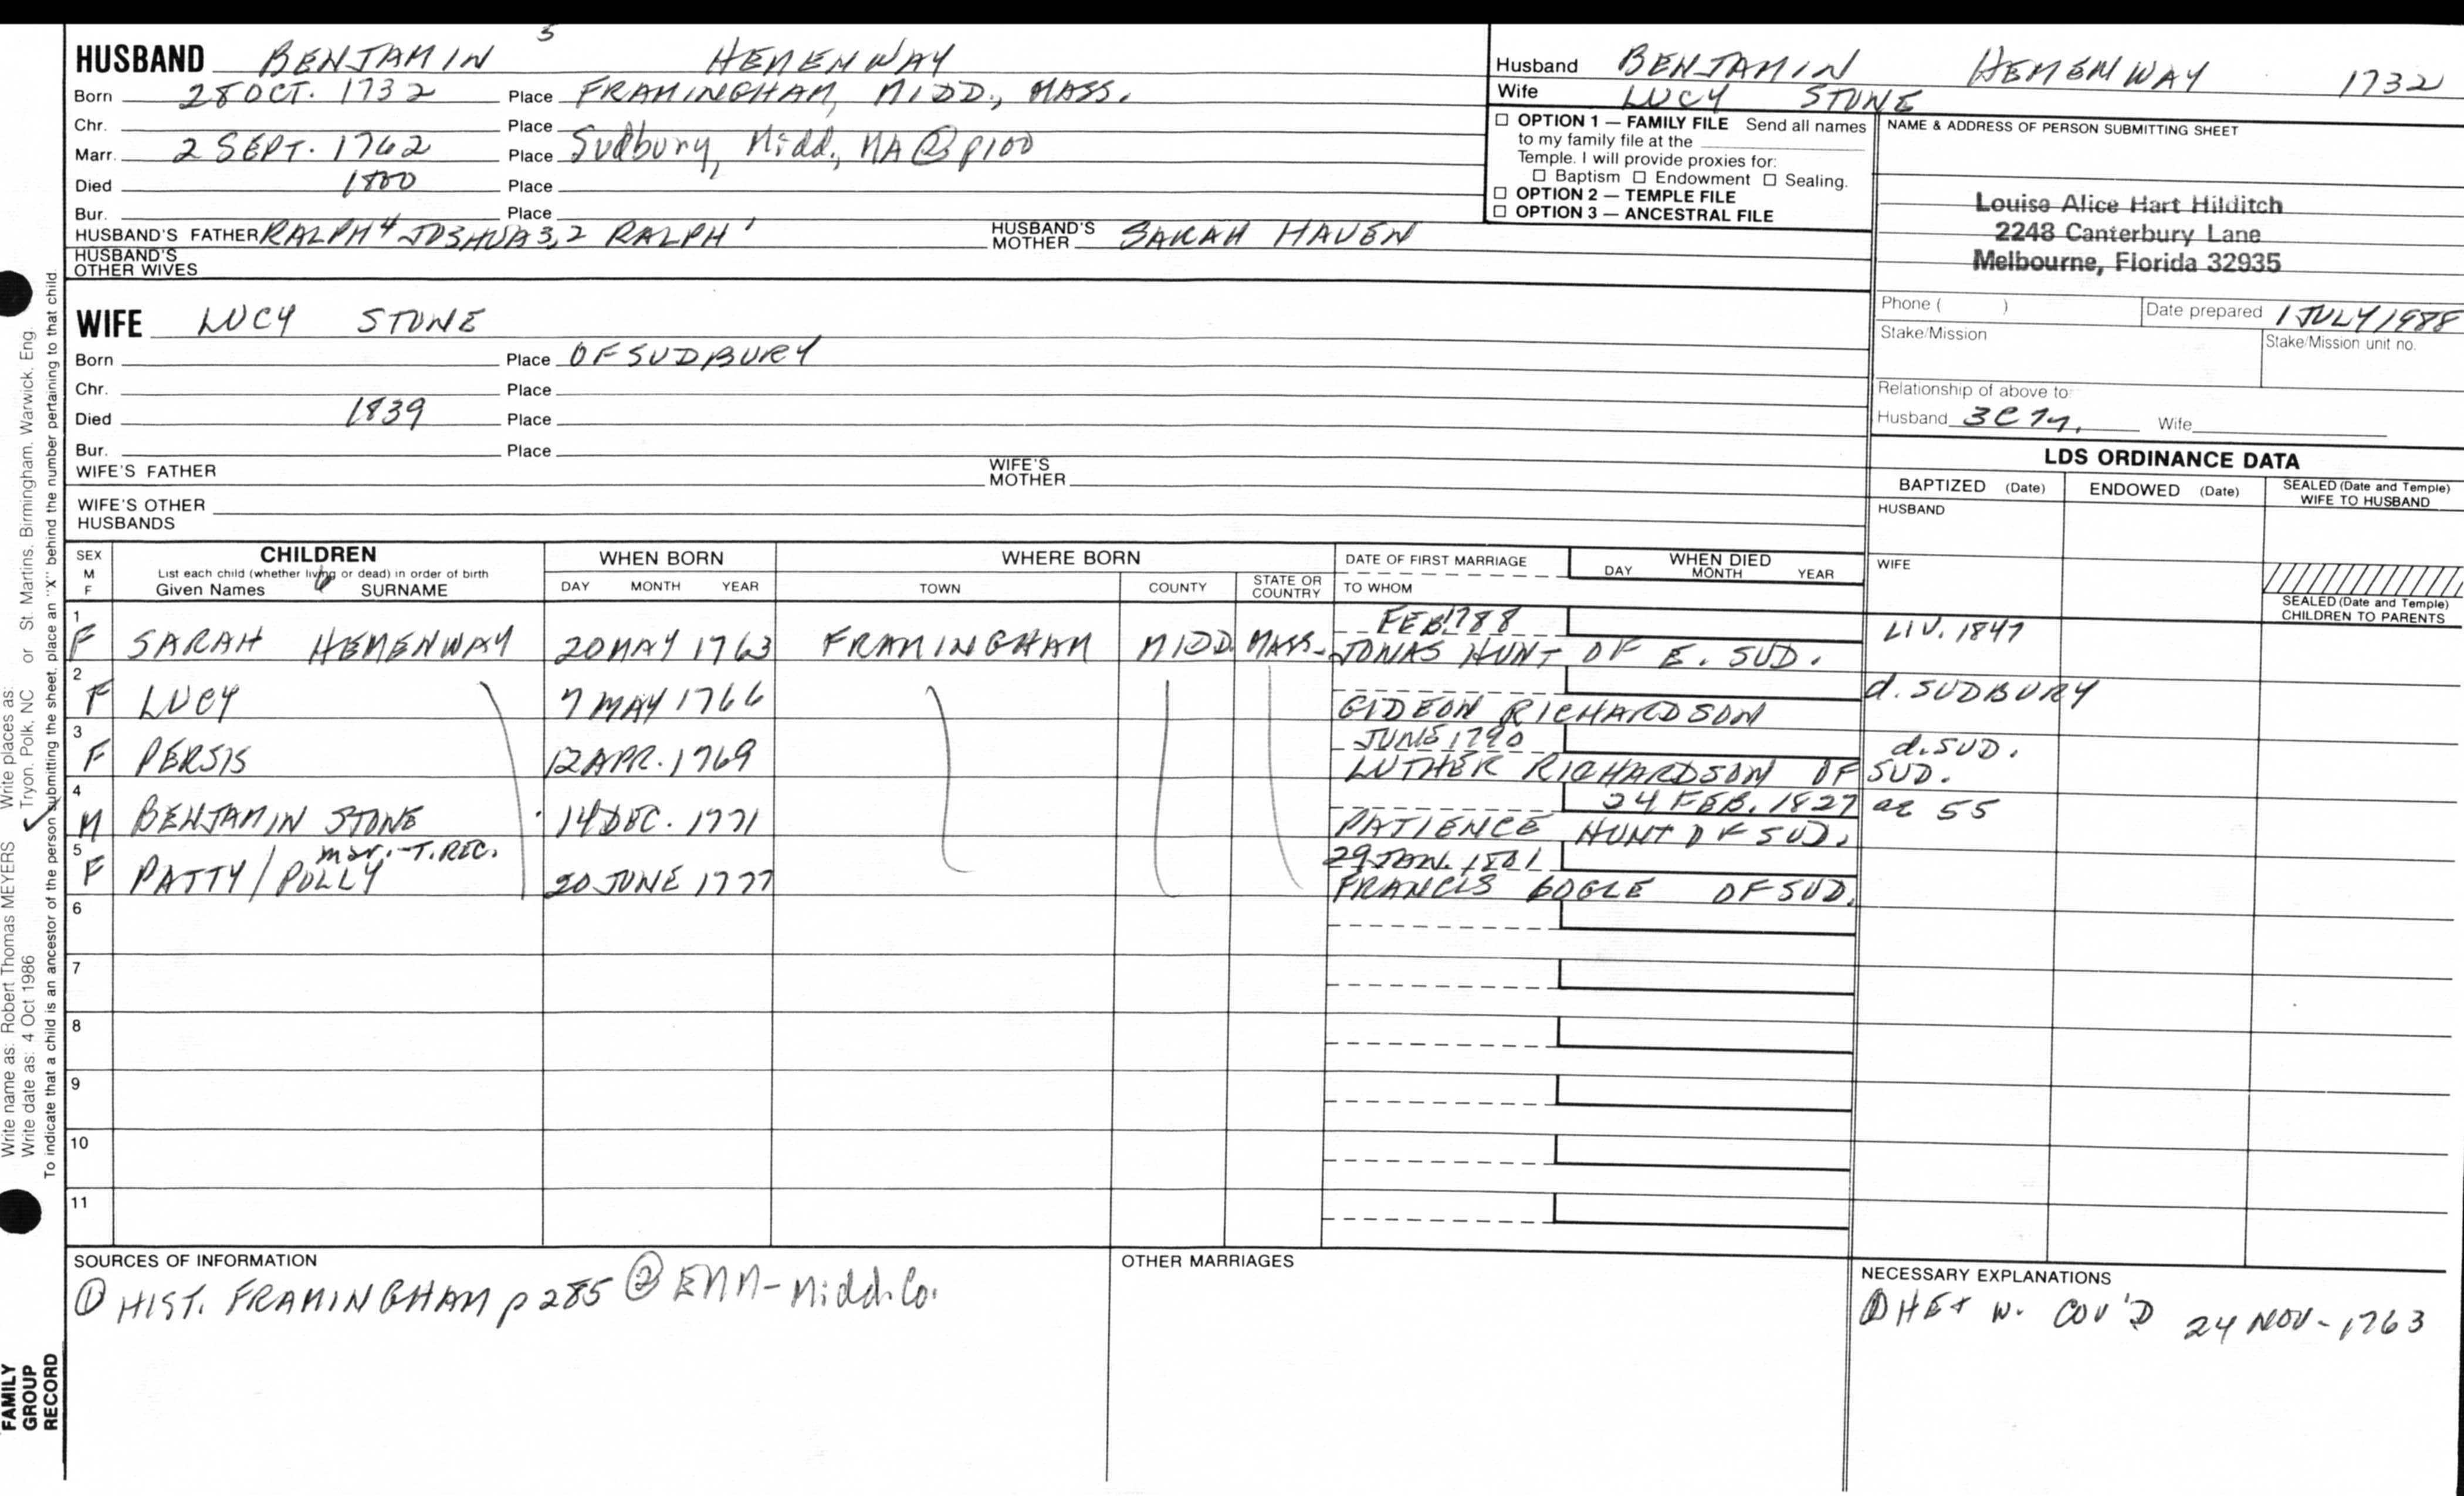 5
HUSBAND BENJAMIN HEMENWAY
Born 28 OCT. 1732 Place FRAMINGHAM, MIDD., MASS.
Chr. Place
Marr. 2 SEPT. 1762 Place Sudbury, Midd., MA @ p100
Died 1800 Place
Bur. Place
HUSBAND'S FATHER RALPH 4 JOSHUA 3,2 RALPH 1 HUSBAND'S MOTHER SARAH HAVEN
HUSBAND'S
OTHER WIVES
Husband BENJAMIN HEMENWAY 1732
Wife LUCY STONE
☐ OPTION 1 — FAMILY FILE Send all names
to my family file at the
Temple. I will provide proxies for:
☐ Baptism ☐ Endowment ☐ Sealing.
☐ OPTION 2 — TEMPLE FILE
☐ OPTION 3 — ANCESTRAL FILE
NAME & ADDRESS OF PERSON SUBMITTING SHEET
Louise Alice Hart Hilditch
2248 Canterbury Lane
Melbourne, Florida 32935
Phone ( ) Date prepared 1 JULY 1988
Stake/Mission Stake/Mission unit no.
Relationship of above to:
Husband 3C7r. Wife
WIFE LUCY STONE
Born Place OF SUDBURY
Chr. Place
Died 1839 Place
Bur. Place
WIFE'S FATHER WIFE'S MOTHER
WIFE'S OTHER
HUSBANDS
LDS ORDINANCE DATA
BAPTIZED (Date) ENDOWED (Date) SEALED (Date and Temple) WIFE TO HUSBAND
HUSBAND
WIFE
SEALED (Date and Temple)
CHILDREN TO PARENTS
SEX M F CHILDREN WHEN BORN WHERE BORN DATE OF FIRST MARRIAGE WHEN DIED
List each child (whether living or dead) in order of birth DAY MONTH YEAR
Given Names SURNAME DAY MONTH YEAR TOWN COUNTY STATE OR COUNTRY TO WHOM
1 FEB 1788
F SARAH HEMENWAY 20 MAY 1763 FRAMINGHAM MIDD. MASS. JONAS HUNT OF E. SUD. LIV. 1847
2
F LUCY 7 MAY 1766 GIDEON RICHARDSON d. SUDBURY
3 JUNE 1790 d. SUD.
F PERSIS 12 APR. 1769 LUTHER RICHARDSON OF SUD.
4 24 FEB. 1827 ae 55
M BENJAMIN STONE 14 DEC. 1771 PATIENCE HUNT OF SUD.
5 mar.-T.REC. 29 JAN. 1801
F PATTY/POLLY 20 JUNE 1777 FRANCIS BOGLE OF SUD.
6
7
8
9
10
11
SOURCES OF INFORMATION
① HIST. FRAMINGHAM p 285 ② EMM-Midd. Co.
OTHER MARRIAGES
NECESSARY EXPLANATIONS
① HE + W. COV'D 24 NOV - 1763
Write name as: Robert Thomas MEYERS Write places as: Tryon, Polk, NC or St. Martins, Birmingham, Warwick, Eng.
Write date as: 4 Oct 1986
To indicate that a child is an ancestor of the person submitting the sheet, place an "X" behind the number pertaining to that child.
FAMILY
GROUP
RECORD